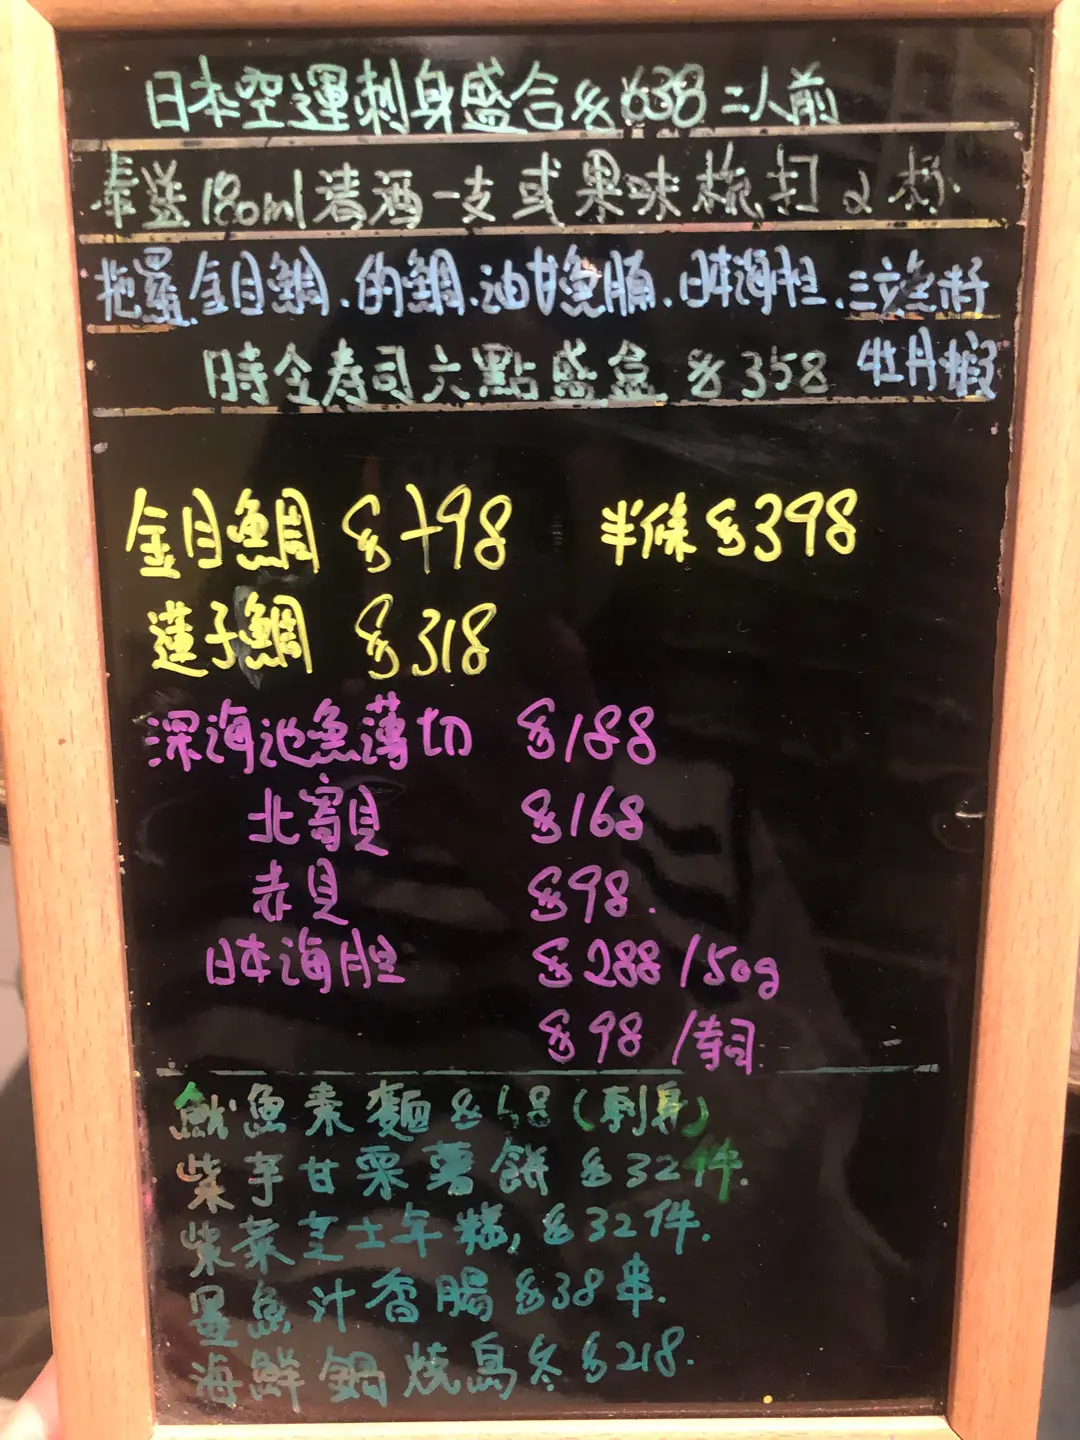 日本空運刺身盛合 $638 二人前
奉送180ml清酒一支或果味梳打2杯
拖羅、金目鯛、的鯛、油甘魚腩、日本海胆、三文魚籽
牡丹蝦
時令寿司六點盛盒 $358
金目鯛 $798 半條 $398
蓮子鯛 $318
深海池魚薄切 $188
北寄貝 $168
赤貝 $98.
日本海胆 $288 /50g
$98 /寿司
魷魚素麵 $68 (刺身)
紫芋甘栗薯餅 $32件.
紫菜芝士年糕, $32件.
墨魚汁香腸 $38串.
海鮮鍋燒烏冬 $218.